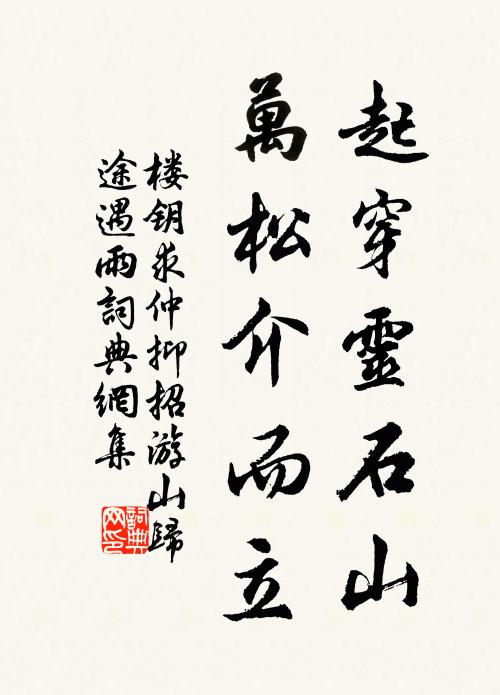 起穿靈石山
萬松介而立
楼钥求仲抑招游山歸
途遇雨詞典網集
詞典
网印